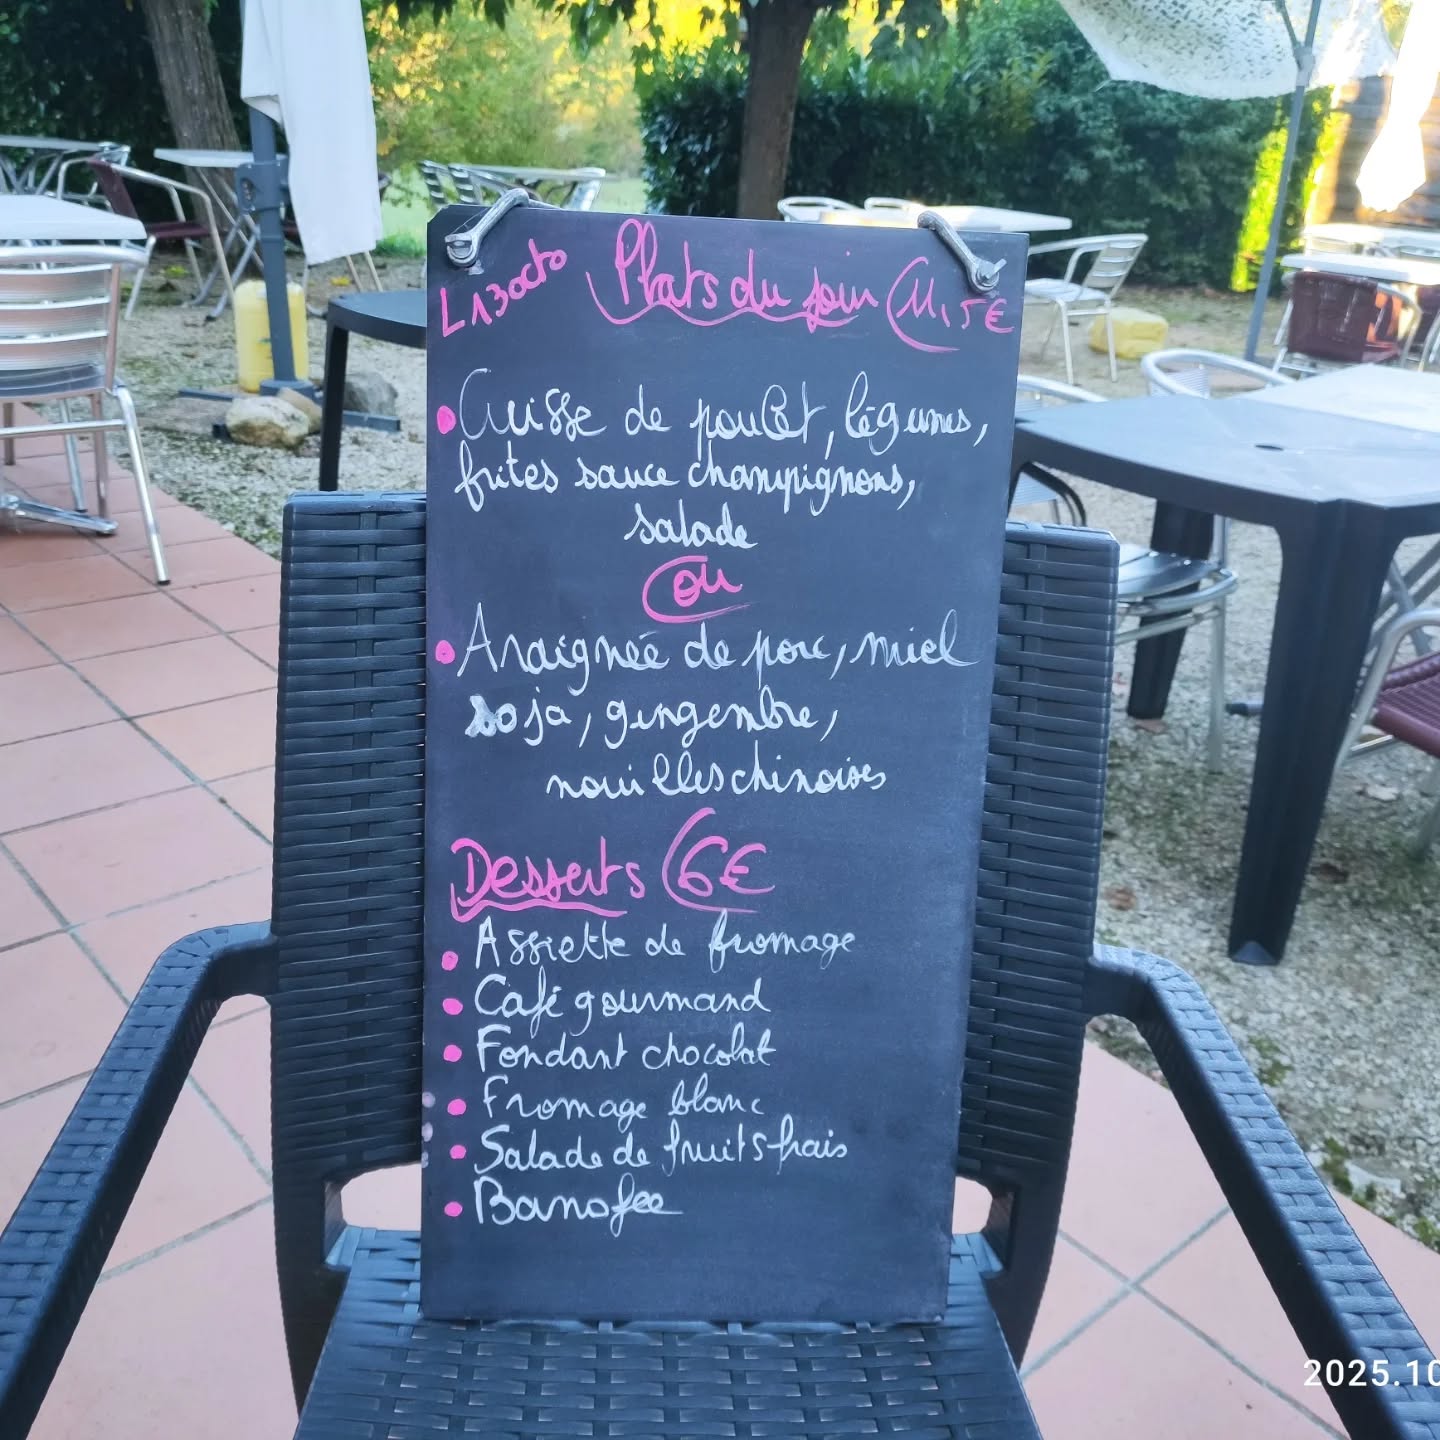 L13octo Plats du jour 11,5€
Cuisse de poulet, légumes,
frites sauce champignons,
salade
ou
Araignée de porc, miel
soja, gingembre,
nouilles chinoises
Desserts 6€
Assiette de fromage
Café gourmand
Fondant chocolat
Fromage blanc
Salade de fruits frais
Banofee
2025.10